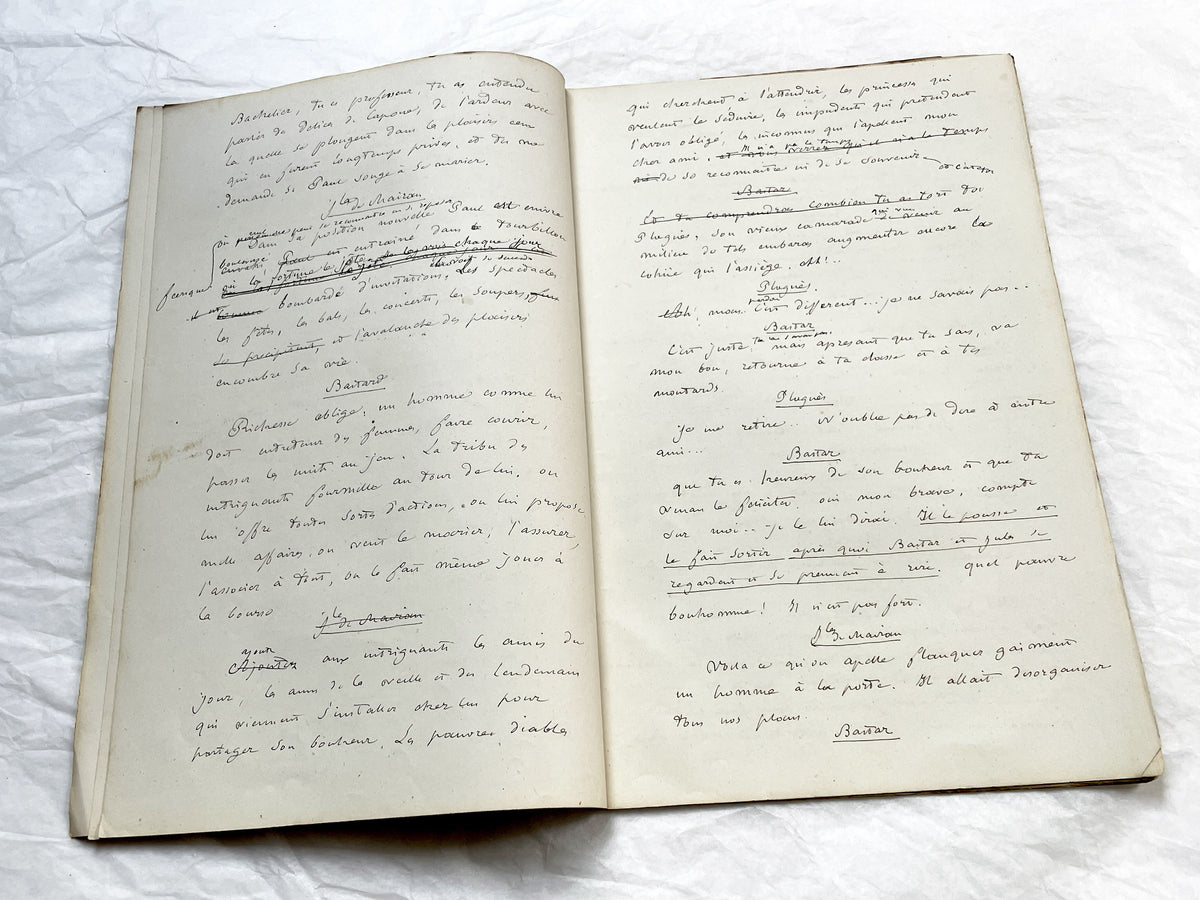 Bachelier, tu es professeur, tu as entendu
parler de délices de Capoue, de l'ardeur avec
la quelle se plongent dans les plaisirs ceux
qui en furent longtemps privés, et tu me
demande si Paul songe à se marier.
Jles de Mairan
dans sa position nouvelle Paul est enivré
entrainé dans le tourbillon
bombardé d'invitations, les spectacles
les fêtes, les bals, les concerts, les soupers,
se précipitent, et l'avalanche des plaisirs
encombre sa vie.
Baitard
Richesse oblige, un homme comme lui
doit entretenir des femmes, faire courir,
passer les nuits au jeu. La tribu des
intrigants fourmille au tour de lui, on
lui offre toutes sortes d'actions, on lui propose
mille affaires, on veut le marier, l'assurer,
l'associer à tout, on le fait même jouer à
la bourse
Jles de Mairan
ajoute
aux intrigants les amis du
jour, les amis de la veille et du lendemain
qui viennent s'installer chez lui pour
partager son bonheur. Les pauvres diables
qui cherchent à l'attendrir, les princesses qui
veulent le séduire, les impudents qui prétendent
l'avoir obligé, les inconnus qui l'apellent mon
cher ami, Il n'a pas le temps
de se reconnaitre ni de se souvenir
Baitar
Et tu comprendras combien tu as tort toi
Pluquès, son vieux camarade qui vas
milieu de tels embaras augmenter encore la
cohue qui l'assiège. ah!..
Pluquès.
Ah! mais c'est different... je ne savais pas..
Baitar
C'est juste, tu ne l'savais pas, mais apresant que tu sais, va
mon bon, retourne à ta classe et à tes
moutards.
Pluquès
Je me retire... N'oublie pas de dire à notre
ami...
Baitar
que tu es heureux de son bonheur et que tu
venais le féliciter, oui mon brave, compte
sur moi... je le lui dirai. Il le pousse et
le fait sortir après quoi Baitar et Jules se
regardent et se prennent à rire. quel pauvre
bonhomme! Il n'est pas fort.
Jles de Mairan
Voila ce qu'on apelle flanquer gaiment
un homme à la porte. Il allait desorganiser
tous nos plans.
Baitar